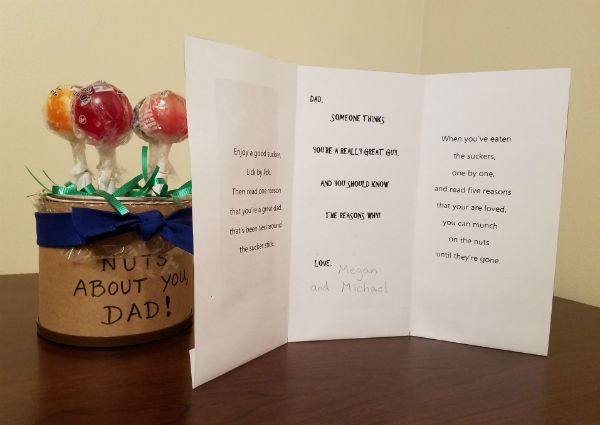 NUTS
ABOUT YOU,
DAD!
Enjoy a good sucker,
Lick by lick.
Then read one reason
that you're a great dad,
that's been tied around
the sucker stick.
DAD,
SOMEONE THINKS
YOU'RE A REALLY GREAT GUY,
AND YOU SHOULD KNOW
THE REASONS WHY!
LOVE,
Megan
and Michael
When you've eaten
the suckers,
one by one,
and read five reasons
that your are loved,
you can munch
on the nuts
until they're gone.